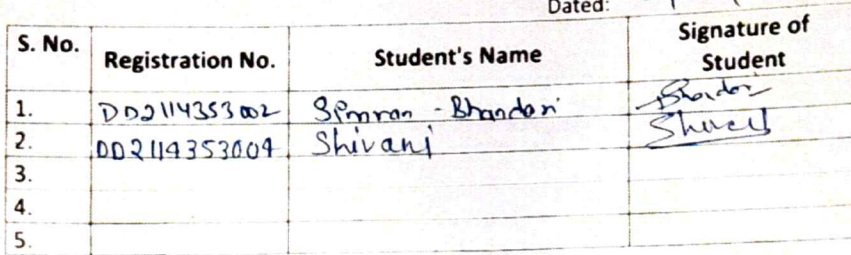 Dated:
S. No. Registration No. Student's Name Signature of Student
1. DD2114353002 Simran - Bhandari Bhandari
2. DD2114353009 Shivani Shivani
3.
4.
5.